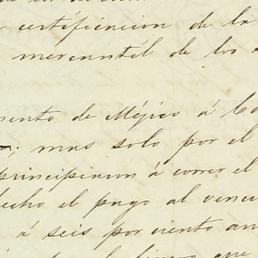 certificacion de la
mercantil de los
mento de Méjico á
; mas solo por el
principiaron á correr el
echo el pago al venci
á seis por ciento an
que